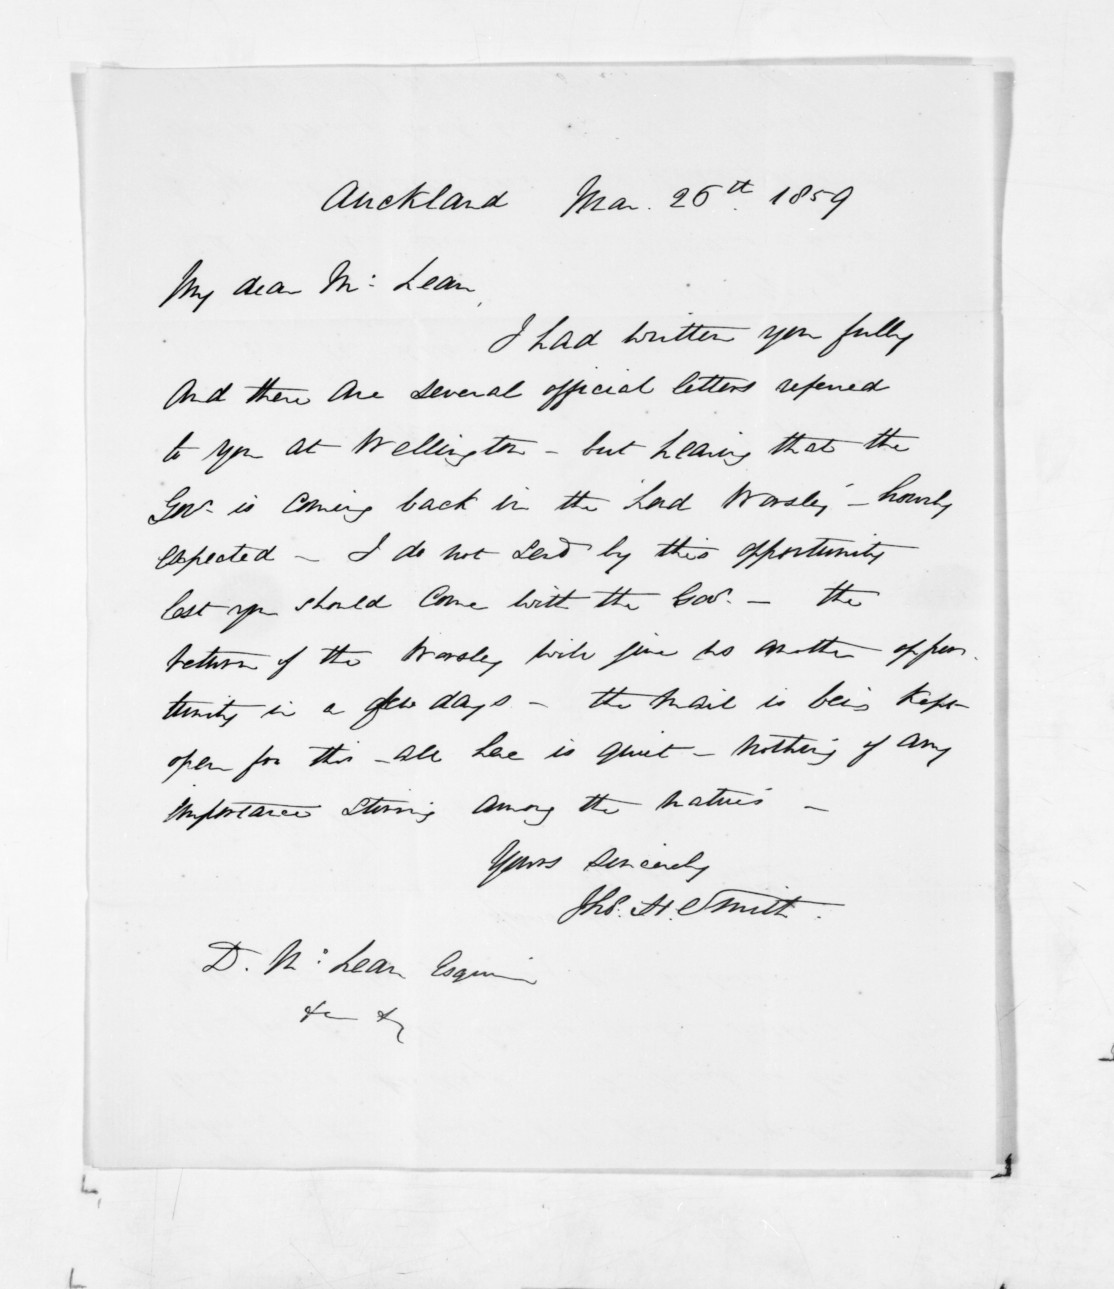 Auckland Mar. 26th 1859
My dear Mc: Lean,
I had written you fully
and there are several official letters referred
to you at Wellington - but hearing that the
Govr. is coming back in the 'Lord Worsley' - hourly
expected - I do not send by this opportunity
lest you should come with the Govr. - the
return of the Worsley will give us another oppor-
tunity in a few days - the mail is being kept
open for this - all here is quiet - nothing of any
importance stirring among the natives -
Yours sincerely
Jhs. H. Smith.
D. Mc: Lean Esquire
&c &c